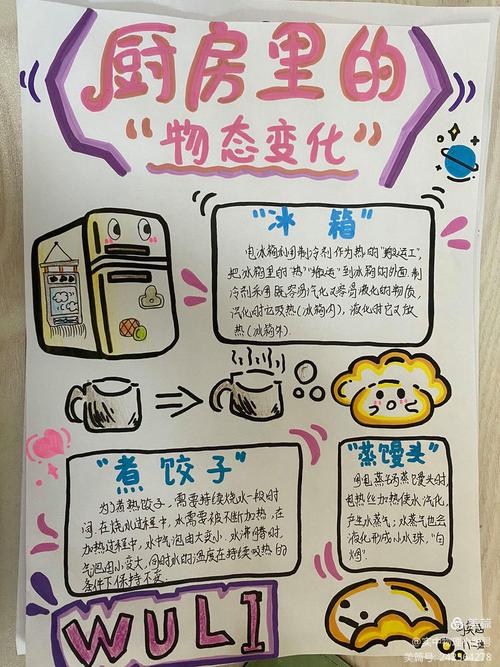 厨房里的
“物态变化”
“冰箱”
电冰箱利用制冷剂作为热的“搬运工”,
把冰箱里的“热”“搬运”到冰箱的外面.制
冷剂采用既容易汽化又容易液化的物质,
汽化时它吸热(冰箱内),液化时它又放
热(冰箱外).
“煮饺子”
为了煮熟饺子,需要持续烧水一段时
间.在烧水过程中,水需要被不断加热,在
加热过程中,水中气泡由大变小,水沸腾时,
气泡由小变大,同时水的温度在持续吸热的
条件下保持不变.
“蒸馒头”
用电蒸锅蒸馒头时
电热丝加热使水汽化,
产生水蒸气,水蒸气也会
液化形成小水珠,“白
烟”.
WULI
美篇
美篇号:242564278